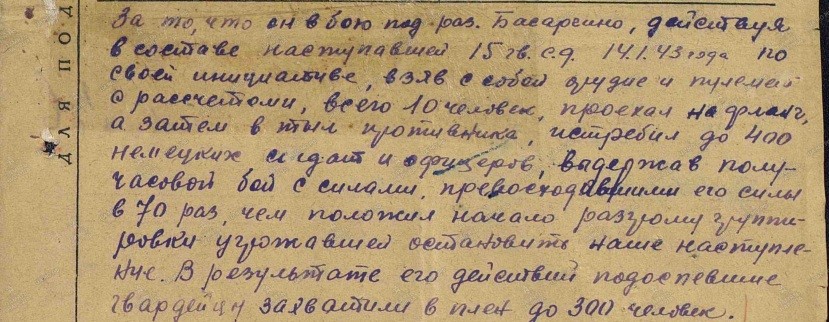 За то, что он в бою под раз. Басаргино, действуя
в составе наступавшей 15 гв. с.д. 14.1.43 года по
своей инициативе, взяв с собой орудие и пулемет
с рассчетами, всего 10 человек, проехал на фланг,
а затем в тыл противника, истребил до 400
немецких солдат и офицеров, выдержав полу-
часовой бой с силами, превосходившими его силы
в 70 раз, чем положил начало разгрому группи-
ровки угрожавшей остановить наше наступле-
ние. В результате его действий подоспевшие
гвардейцы захватили в плен до 300 человек.
ДЛЯ ПОД